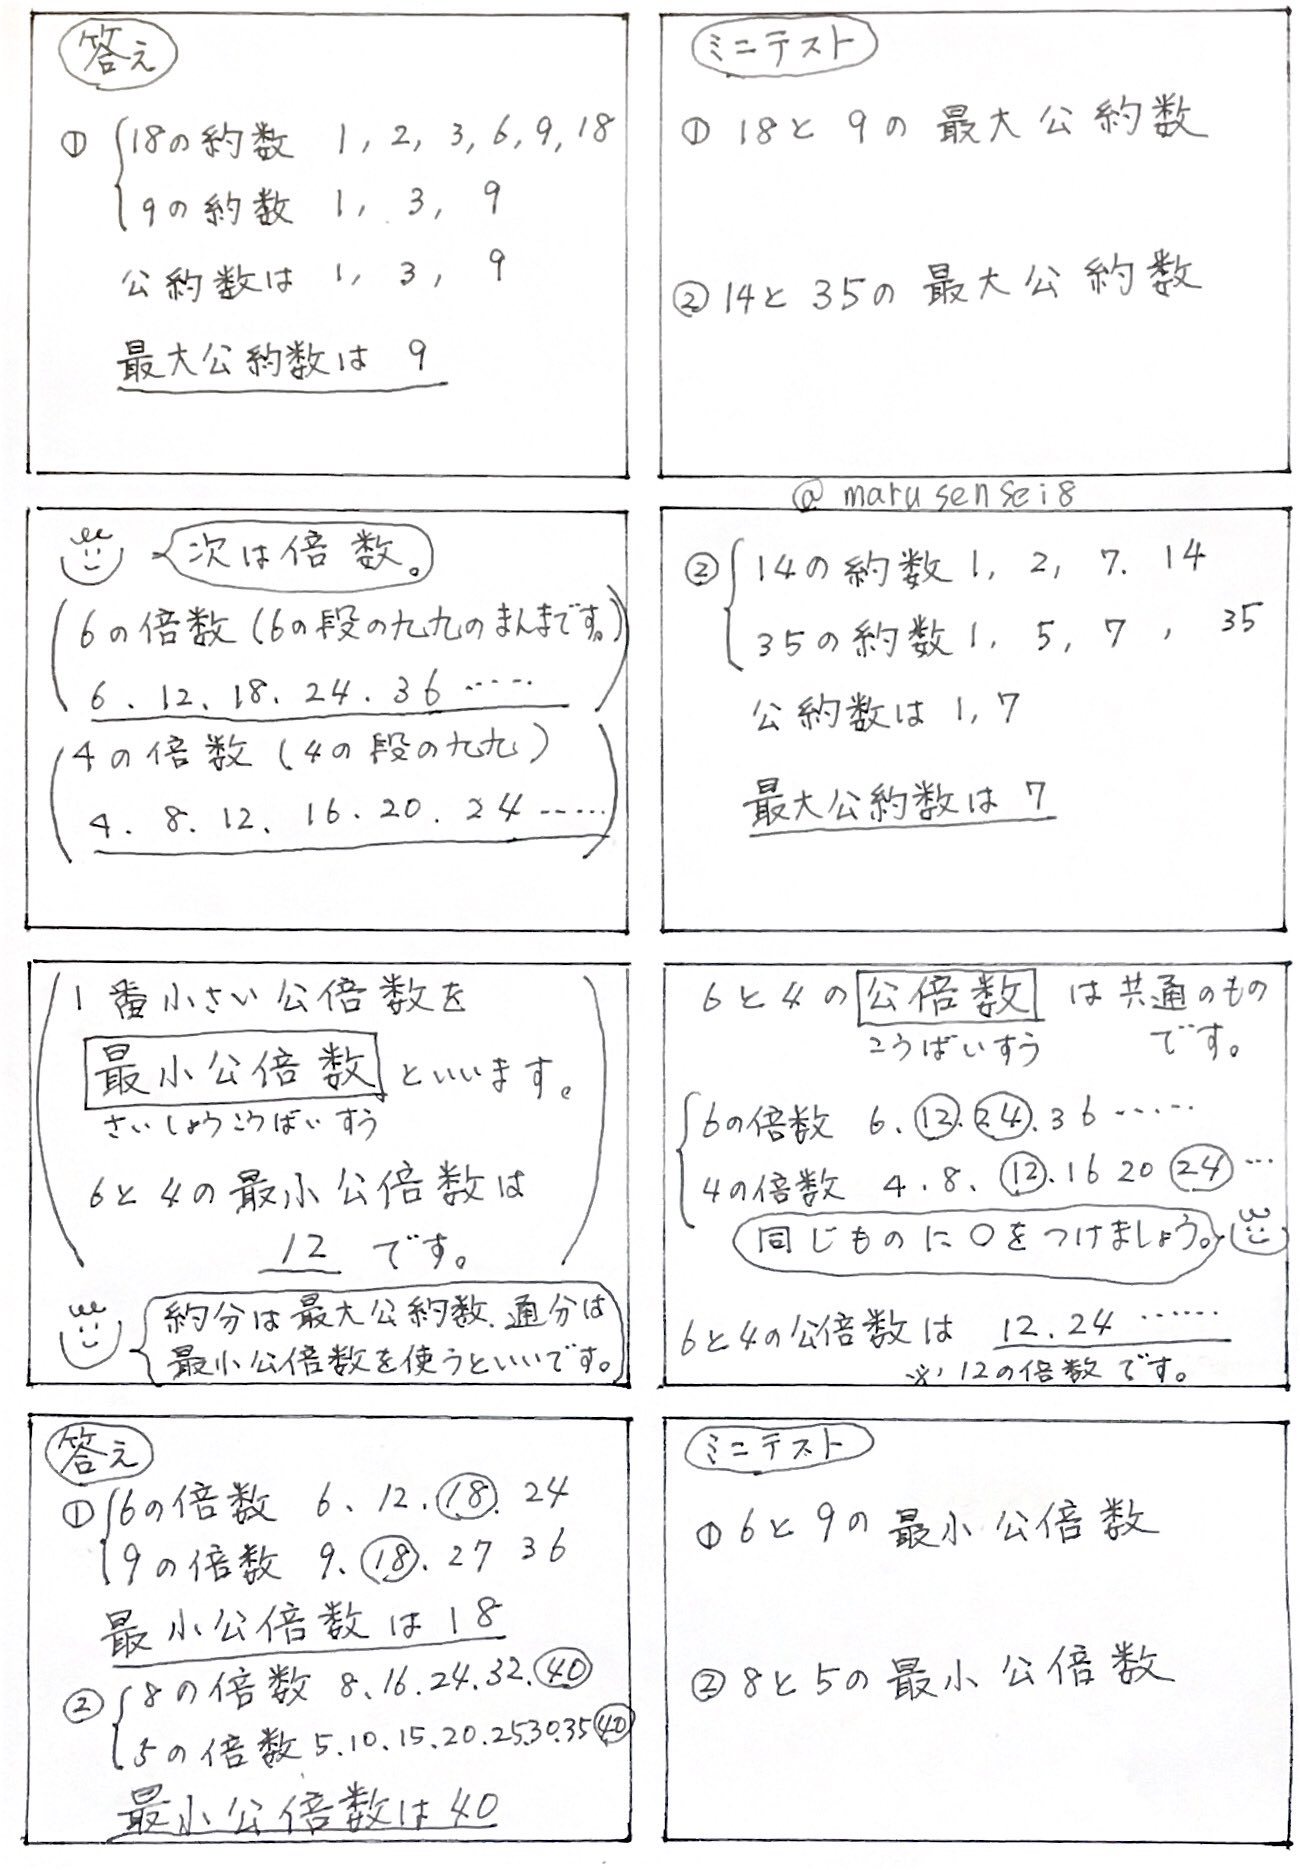 ミニテスト
① 18と9の最大公約数
② 14と35の最大公約数
答え
① 18の約数 1, 2, 3, 6, 9, 18
9の約数 1, 3, 9
公約数は 1, 3, 9
最大公約数は 9
@marusensei8
② 14の約数 1, 2, 7. 14
35の約数 1, 5, 7, 35
公約数は 1, 7
最大公約数は 7
次は倍数。
6の倍数(6の段の九九のまんまです。)
6. 12. 18. 24. 36 ……
4の倍数(4の段の九九)
4. 8. 12. 16. 20. 24 ……
6と4の公倍数は共通のもの
こうばいすう
です。
6の倍数 6. 12. 24. 36 ……
4の倍数 4. 8. 12. 16 20 24 …
同じものに○をつけましょう。
6と4の公倍数は 12. 24 ……
※ 12の倍数です。
1番小さい公倍数を
最小公倍数といいます。
さいしょうこうばいすう
6と4の最小公倍数は
12 です。
約分は最大公約数、通分は
最小公倍数を使うといいです。
ミニテスト
① 6と9の最小公倍数
② 8と5の最小公倍数
答え
① 6の倍数 6. 12. 18. 24
9の倍数 9. 18. 27 36
最小公倍数は 18
② 8の倍数 8. 16. 24. 32. 40
5の倍数 5. 10. 15. 20. 25. 30. 35 40
最小公倍数は 40